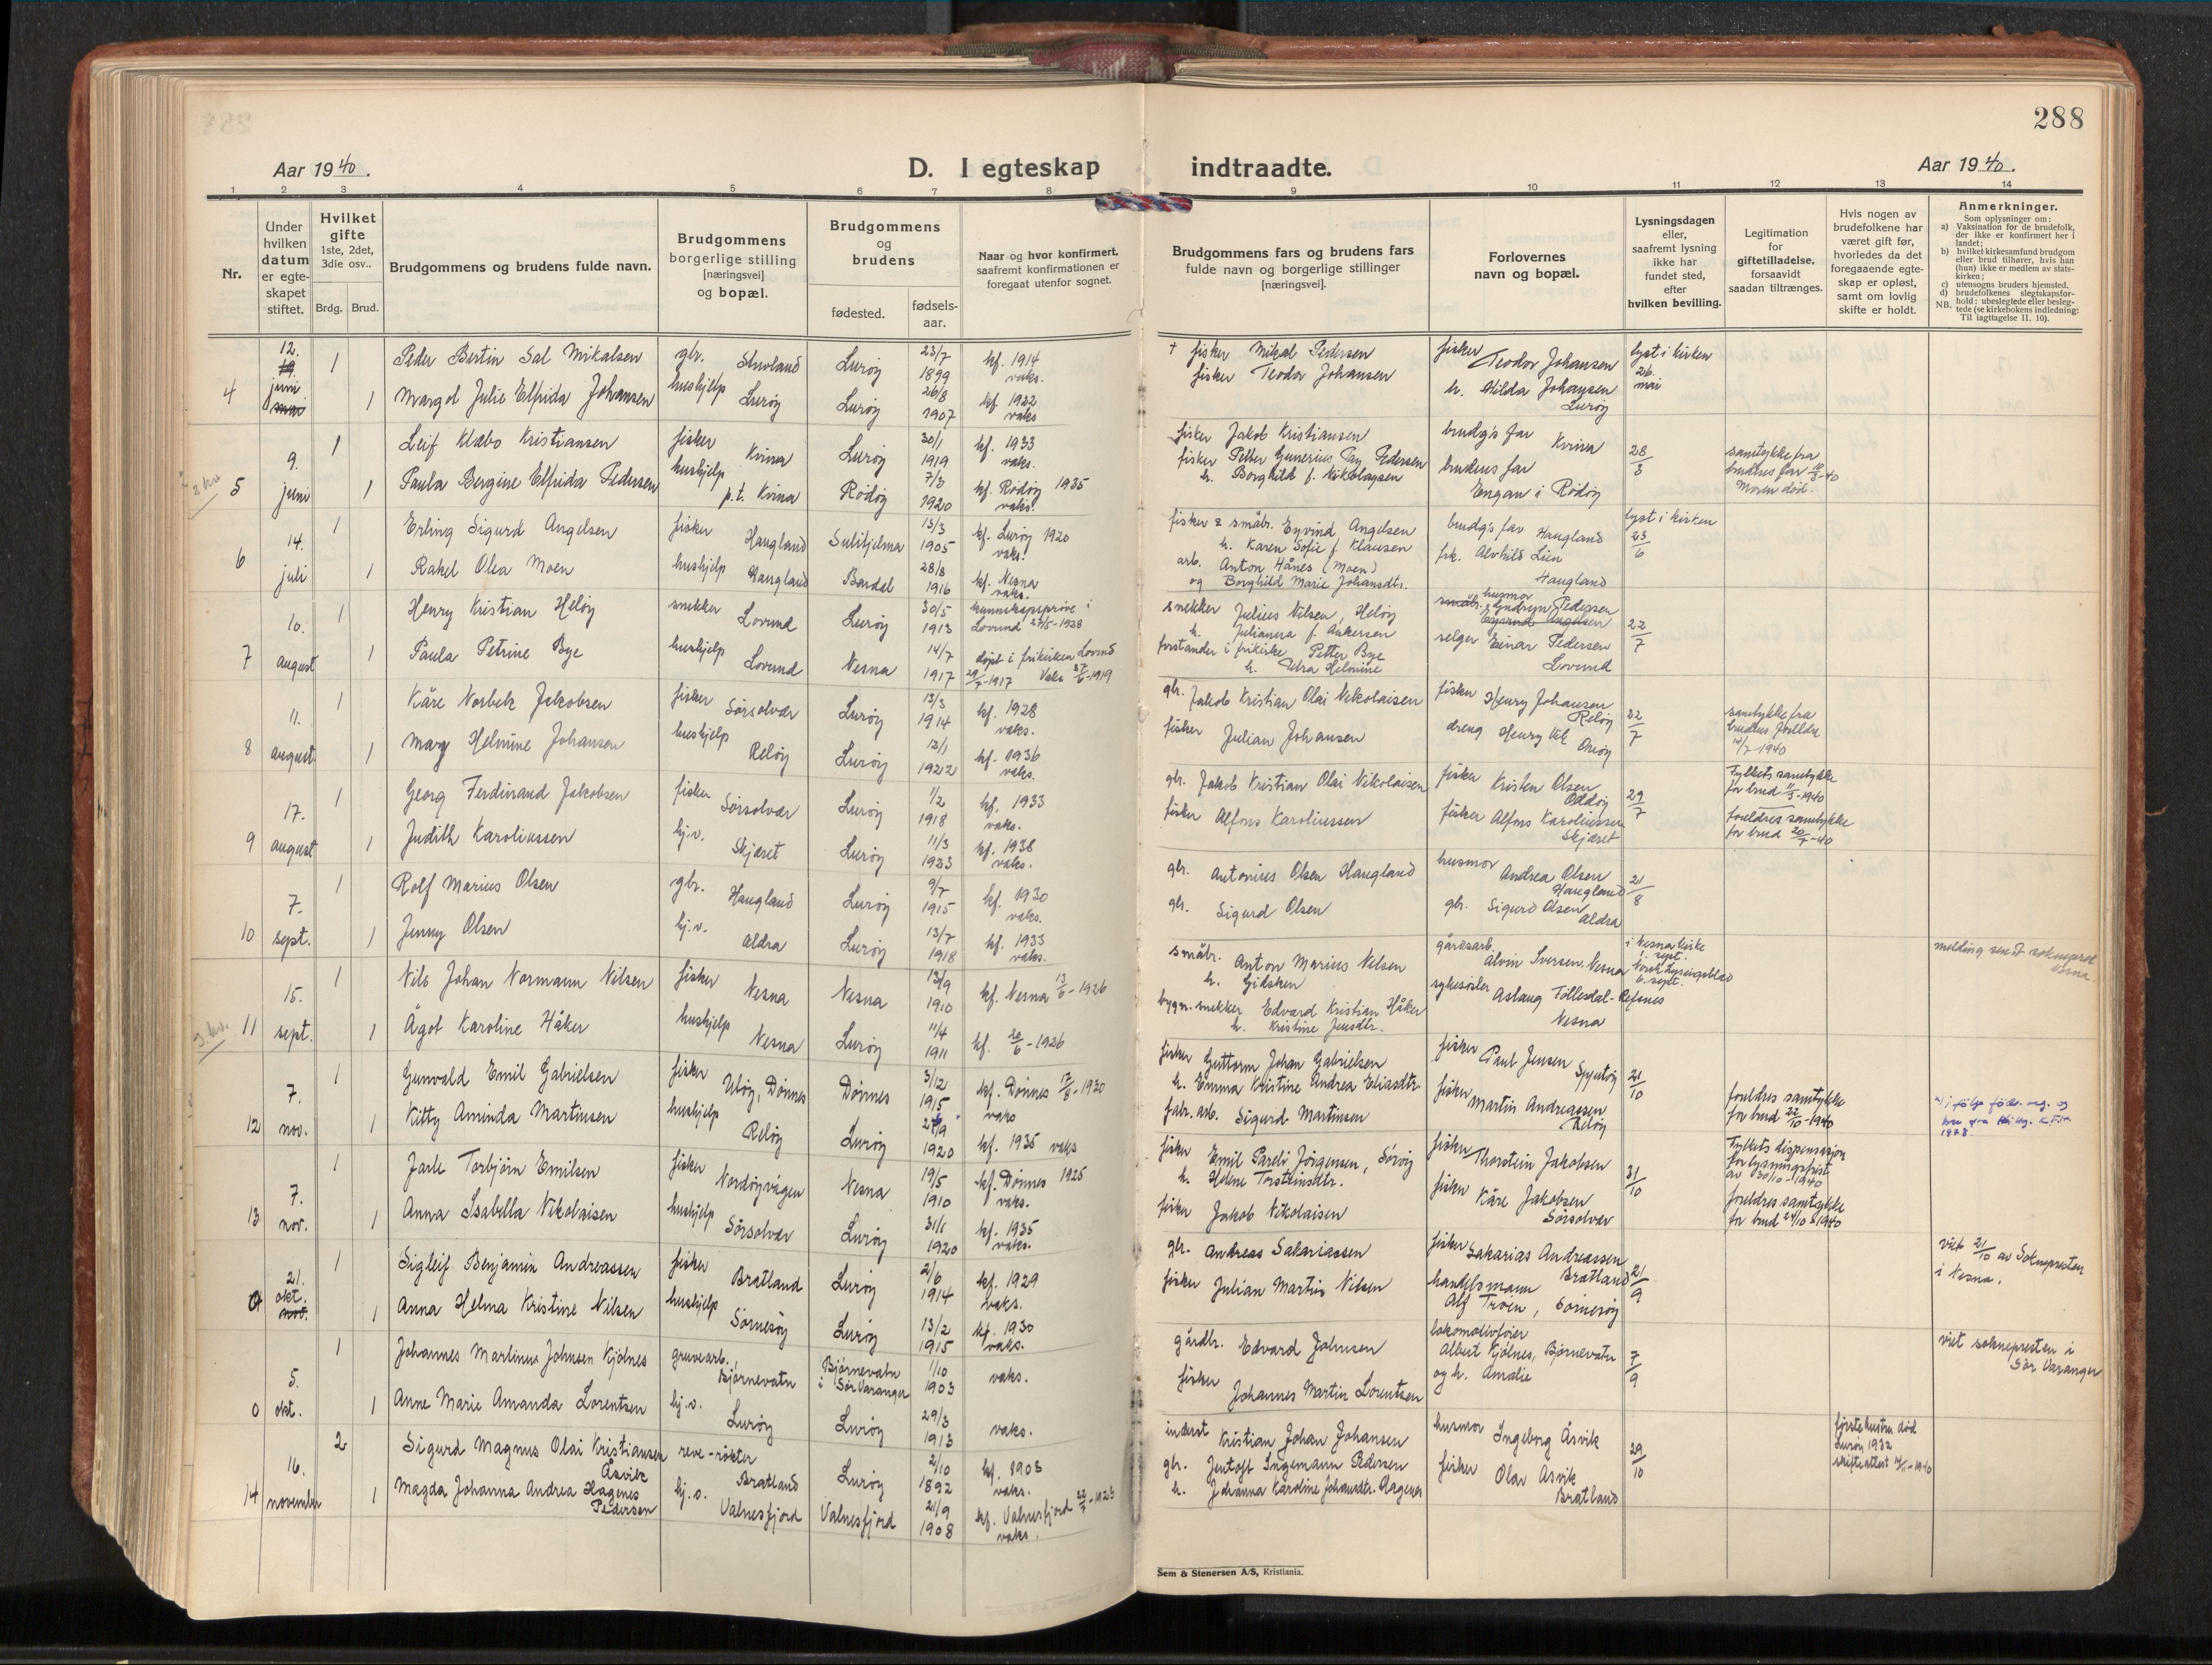 288
Aar 1940.
D. I egteskap indtraadte.
Aar 1940.
1 2 3 4 5 6 7 8 9 10 11 12 13 14
Nr.
Under hvilken datum er egte-skapet stiftet.
Hvilket gifte 1ste, 2det, 3die osv..
Brdg. Brud.
Brudgommens og brudens fulde navn.
Brudgommens borgerlige stilling [næringsvei] og bopæl.
Brudgommens og brudens
fødested.
fødsels-aar.
Naar og hvor konfirmert, saafremt konfirmationen er foregaat utenfor sognet.
Brudgommens fars og brudens fars fulde navn og borgerlige stillinger [næringsvei].
Forlovernes navn og bopæl.
Lysningsdagen eller, saafremt lysning ikke har fundet sted, efter hvilken bevilling.
Legitimation for giftetilladelse, forsaavidt saadan tiltrænges.
Hvis nogen av brudefolkene har været gift før, hvorledes da det foregaaende egte-skap er opløst, samt om lovlig skifte er holdt.
Anmerkninger.
Som oplysninger om:
a) Vaksination for de brudefolk, der ikke er konfirmert her i landet;
b) hvilket kirkesamfund brudgom eller brud tilhører, hvis han (hun) ikke er medlem av stats-kirken;
c) utensogns bruders hjemsted.
d) brudefolkenes slegtskapsfor-hold: ubeslegtede eller besleg-tede (se kirkebokens indledning:
NB. Til iagttagelse II. 10).
4
12. juni
1 Peder Bertin Sal Mikalsen gbr. Lurøy 23/7 1899 kf. 1914 vaks.
1 Margot Julie Elfrida Johansen hushjelp Lurøy Lurøy 26/8 1907 kf. 1922 vaks
+ fisker Mikal Pedersen
fisker Teodor Johansen
fisker Teodor Johansen
h. Hilda Johansen Lurøy
lyst i kirken 26. mai
5
9. juni
1 Leif Klæbo Kristiansen fisker Kvina Lurøy 30/1 1919 kf. 1933 vaks.
1 Paula Bergine Elfrida Pedersen hushjelp p.t. Kvina Rødøy 7/3 1920 kf. Rødøy 1935 vaks.
fisker Jakob Kristiansen
fisker Petter Gunerius Pedersen
h. Borghild f. Nikolaysen
brudg's far Kvina
brudens far Engan i Rødøy
28/3
samtykke fra brudens far
Moren død.
6
14. juli
1 Erling Sigurd Angelsen fisker Haugland Sulitjelma 13/3 1905 kf. Lurøy 1920 vaks.
1 Rakel Olea Moen hushjelp Haugland Bardal 28/8 1916 kf. Nesna vaks.
fisker & småbr. Eyvind Angelsen
h. Karen Sofie f. Klausen
arb. Anton Hånes (Moen)
og Borghild Marie Johansdtr.
brudg's far Haugland
frk. Alvhild Lien Haugland
lyst i kirken 23/6
7
10. august
1 Henry Kristian Heløy snekker Lovund Lurøy 30/5 1913 kunnskapsprøve i Lovund 27/5-1928
1 Paula Petrine Bye hushjelp Lovund Nesna 14/7 1917 døpt i frikirken Lovund 29/7-1917
snekker Julius Nilsen, Heløy
h. Julianna f. Ankersen
forstander i frikirke Petter Bye
h. Petra Helmine
husmor Pedersen
selger Einar Pedersen Lovund
22/7
8
11. august
1 Kåre Norbek Jakobsen fisker Sørsolvær Lurøy 13/3 1914 kf. 1928 vaks.
1 Mary Helmine Johansen hushjelp Reløy Lurøy 12/1 1922 kf. 1936 vaks.
gbr. Jakob Kristian Olai Nikolaisen
fisker Julian Johansen
fisker Henry Johansen Reløy
dreng Henry Vik Onøy
22/7
samtykke fra brudens foreldre 14/7-1940
9
17. august
1 Georg Ferdinand Jakobsen fisker Sørsolvær Lurøy 1/2 1918 kf. 1933 vaks.
1 Judith Karoliussen hj.v. Skjæret Lurøy 11/3 1923 kf. 1938 vaks.
gbr. Jakob Kristian Olai Nikolaisen
fisker Alfons Karoliussen
fisker Kristen Olsen
fisker Alfons Karoliussen Skjæret
29/7
Fylkets samtykke for brud
foreldres samtykke for brud 20/7-40
10
7. sept.
1 Rolf Marius Olsen gbr. Haugland Lurøy 9/7 1915 kf. 1930 vaks.
1 Jenny Olsen hj.v. Aldra Lurøy 13/7 1918 kf. 1933 vaks.
gbr. Antonius Olsen Haugland
gbr. Sigurd Olsen
husmor Andrea Olsen Haugland
gbr. Sigurd Olsen Aldra
21/8
11
15. sept.
1 Nils Johan Normann Nilsen fisker Nesna Nesna 13/9 1910 kf. Nesna 13/6-1926
1 Ågot Karoline Håker hushjelp Nesna Lurøy 11/4 1911 kf. 20/6-1926
småbr. Anton Marius Nilsen
h. Gidsken
bygn. snekker Edvard Kristian Håker
h. Kristine Jensdtr.
gårdsarb. Alvin Iversen, Nesna
sykesøster Aslaug Tollesdal-Refsnes Nesna
i Nesna kirke 1. sept.
Norsk Lysingsblad 6. sept.
melding sendt sokneprest Nesna.
12
7. nov.
1 Gunvald Emil Gabrielsen fisker Uløy, Dønnes Dønnes 3/12 1915 kf. Dønnes 17/8-1930 vaks
1 Kitty Aminda Martinsen hushjelp Reløy Lurøy 1920 kf. 1935 vaks
fisker Guttorm Johan Gabrielsen
h. Emma Kristine Andrea Eliasdtr.
fabr. arb. Sigurd Martinsen
fisker Paul Jensen
fisker Martin Andreassen Reløy
21/10
foreldres samtykke for brud 22/10-1940
13
7. nov.
1 Jarle Torbjørn Emilsen fisker Nordøyvågen Nesna 19/5 1910 kf. Dønnes 1925 vaks.
1 Anna Isabella Nikolaisen hushjelp Sørsolvær Lurøy 31/1 1920 kf. 1935 vaks.
fisker Emil Pareli Jørgensen, Sørøy
h. Helene Torsteinsdtr.
fisker Jakob Nikolaisen
fisker Thorstein Jakobsen
fisker Kåre Jakobsen Sørsolvær
31/10
Fylkets dispensasjon for lysningsfrist av 30/10-1940
foreldres samtykke for brud 24/10-1940
0
21. okt.
1 Sigleif Benjamin Andreassen fisker Bratland Lurøy 2/6 1914 kf. 1929 vaks.
1 Anna Helma Kristine Nilsen hushjelp Sørnesøy Lurøy 13/2 1915 kf. 1930 vaks.
gbr. Andreas Sakariassen
fisker Julian Martin Nilsen
fisker Sakarias Andreassen Bratland
handelsmann Alf Troen, Sørnesøy
21/9
viet 21/10 av Soknepresten i Nesna.
0
5. okt.
1 Johannes Martinus Johnsen Kjølnes gruvearb. Bjørnevatn Bjørnevatn i Sør Varanger 1/10 1903 vaks.
1 Anne Marie Amanda Lorentsen hj.v. Lurøy Lurøy 29/3 1913 vaks.
gårdbr. Edvard Johnsen
fisker Johannes Martin Lorentsen
lokomotivfører Albert Kjølnes, Bjørnevatn
og h. Amalie
7/9
viet soknepresten i Sør Varanger
14
16. november
2 Sigurd Magnus Olai Kristiansen Åsvik reve-røkter Bratland Lurøy 2/10 1892 kf. 1908 vaks.
1 Magda Johanna Andrea Hagenes Pedersen hj.v. Valnesfjord Valnesfjord 21/9 1908 kf. Valnesfjord vaks.
inderst Kristian Johan Johansen
gbr. Jentoft Ingemann Pedersen
h. Johanna Karoline Johansdtr. Hagenes
husmor Ingeborg Åsvik
fisker Olav Åsvik Bratland
29/10
første hustru død Lurøy 1932
Sem & Stenersen A/S, Kristiania.